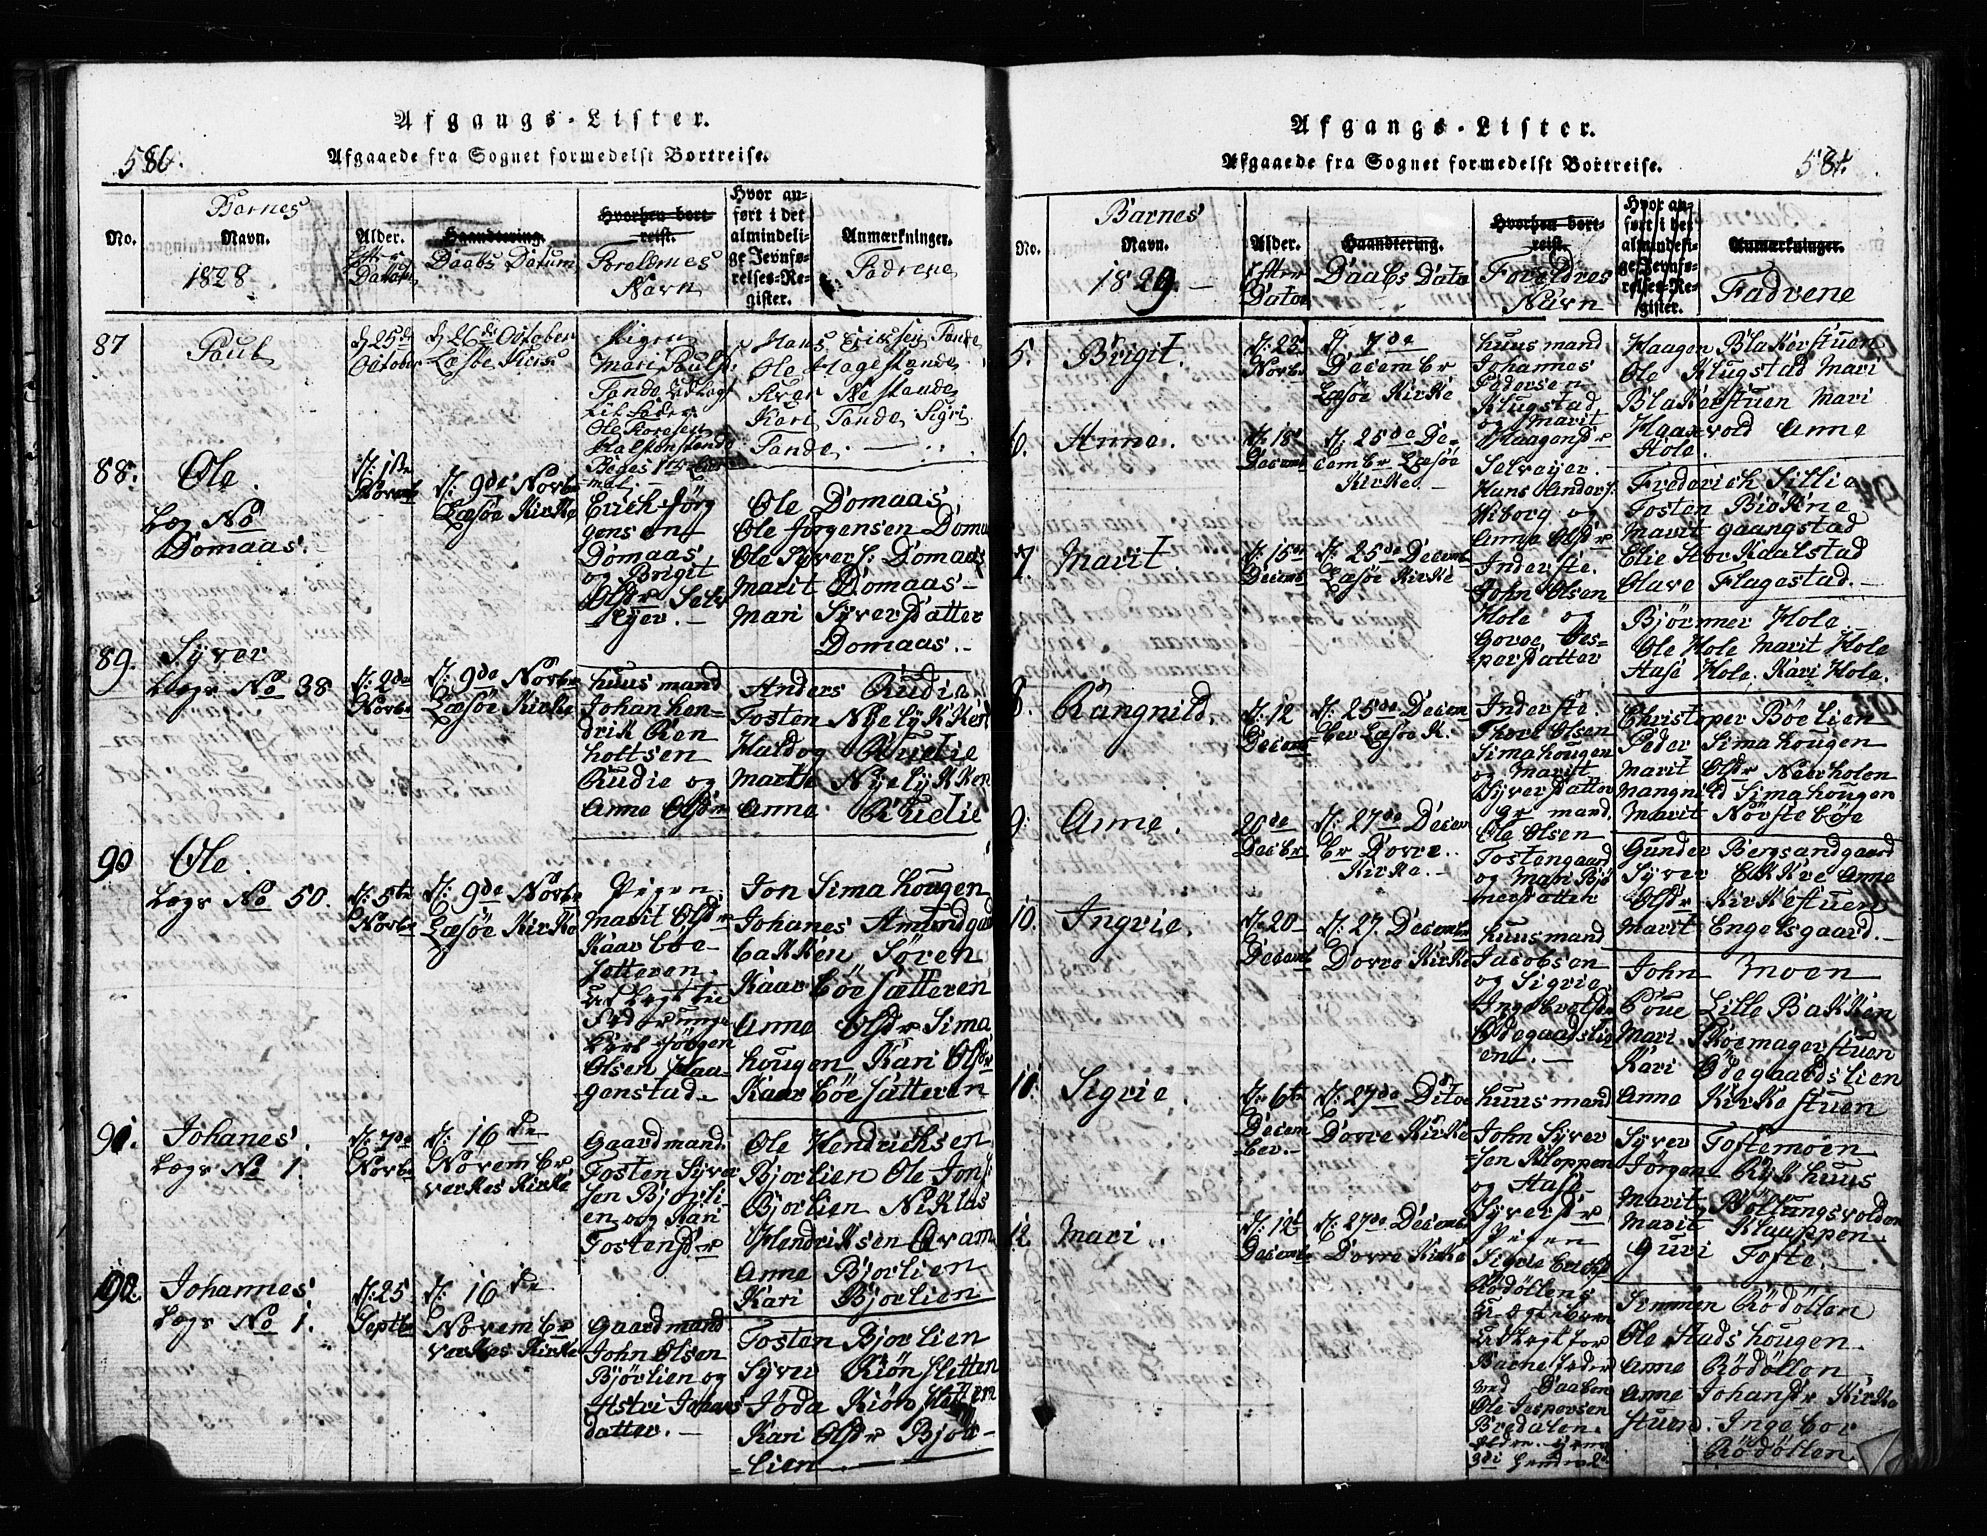 Afgangs-Lister.
586.
Afgaaede fra Sognet formedelst Bortreise.
No.
Barnes
Navn.
1828
Alder.
Haandtering.
Daabs Datum
Hvorhen bort-
reist.
Forældrenes
Navn
Hvor an-
ført i det
almindeli-
ge Jevnfø-
relses-Re-
gister.
Anmærkninger.
Fadrene
87
Paul
d. 25de
October
d. 26de October
Læsøe Kirke
Pigen
Mari Pauls
Sande
Ole
Hans Ericksen Sande
Ole Hagestande
Kari Sande Sigri
Sande
88.
Ole.
Læg No
Domaas.
d. 1ste
Novemb
d. 9de Novbr
Læsøe Kirke
Erick Jörg
gensen
Domaas
og Brigit
Olsdr Selv
Eyer.
Ole Domaas
Ole Jørgensen Doma
Ole Syvers. Domaas
Marit Domaas
Mari Syverdatter
Domaas.
89.
Syver
Lægs No 38
d. 2de
Novbr
d. 9de Novbr
Læsøe Kirke
huusmand
Johan hen-
drik Ren
hottsen
Rudie og
Anne Olsdr
Anders Rudie
Tosten Nyelykken
Haldog Rudie
Marthe Nyelykken
Anne Rudie
90
Ole.
Lægs No 50.
d. 5te
Novbr
d. 9de Novbr
Læsøe Kirke
Pigen
Marit Olsdr
Kaarböe
Sætteren.
udlagt til
Jörgen
Olsen Haa-
genstad.
Jon Simahougen
Johanes Amundga
bakken Sören
Kaarböesætteren
Anne Olsdr Sima
hougen Kari Olsdr
Kaarböesætteren
91.
Johanes.
Lægs No 1.
d. 7de
Novbr
d. 16de
November
verkes Kirke
Gaardmand
Tosten Syver
sen Bjorli
en og Kari
Tostensdr
Ole Hendricksen
Bjorlien Ole Jons
Bjorlien Niklas
Hendriksen Qvam
Anne Bjorlien
Kari Bjorlien
92.
Johannes
Lægs No 1.
d. 25
Septbr
d. 16de
November
verkes Kirke
Gaardmand
John Olsen
Bjørlien og
Astri Johans
datter.
Tosten Bjorlien
Syver Kiönsletten
Jöda Kiönsletten
Kari Olsdr Bjor-
lien
Afgangs-Lister.
Afgaaede fra Sognet formedelst Bortreise.
No.
Barnes
Navn.
1829.
Alder.
Haandtering.
Daabs Dato
Hvorhen bort-
reist.
Forældres
Navn
Hvor an-
ført i det
almindeli-
ge Jevnfø-
relses-Re-
gister.
Anmærkninger.
Fadrene
5.
Brigit.
d. 23
Novbr
d. 7de
December
Læsøe Kirke
huusmand
Johannes
Pedersen
Klugstad
og Marit
Haagensdr
Haagen Blakerstuen
Ole Klugstad Mari
Blakerstuen Mari
Haarvold Anne
Hole.
6.
Anne.
d. 18
Decemb
d. 25de De-
cember Læsøe
Kirke.
Selveyer.
Hans Anders.
Wiborg og
Anne Olsdr
Frederich Lillie
Tosten Biökne
Marit Gaangstad
Elie Stor Kaalstad
Olave Flagestad.
7.
Marit
d. 15de
Decemb
d. 25de Decemb
Læsøe Kirke
Inderste.
John Olsen
Hole og
Goroe Jes-
persdatter
Bjørnner Hole
Ole Hole Marit Hole
Aase Hole. Kari Hole.
8.
Rangnild.
d. 12
Decemb
d. 25de Decem-
ber Læsøe K.
Inderste
Thore Olsen
Simahougen
og Marit
Syversdatter
Christoper Böelien
Peder Simahougen
Marit Olsdr Nærholen
Mangnild Simahougen
Marit Nörsteböe
9.
Anne.
20de
Decbr
d. 27de Decem
br Dovre
Kirke.
gr mand
Ole Olsen
Tostengaard
og Mari Bjö
nersdatter
Gunder Bergsandgaard
Syver Ekkre Anne
Olsdr Kirkestuen
Marit Engelsgaard.
10.
Ingrie.
d. 20
Decemb
d. 27. Decembr
Dovre Kirke
huusmand
Jacobsen
og Sigrie
Ingebrotsdr
Ödegaardsli
en.
John Moen
Poue Lille Bakken
Mari Skoemagerstuen
Kari Ödegaardslien
Anne Kirkestuen
11.
Sigrie.
d. 6te
Decem
ber.
d. 27de Ditoe
Dovre Kirke
huusmand
John Syver
sen Kloppen
og Aase
Syversdr
Syver Toftemoen
Jörgen Ryk huus
Marit Böttangsvolden
Marit Klauppen.
Guri Tofte.
12
Mari.
d. 12te
Decembr
d. 27de Decemb
Dovre Kirke
Pigen
Sigrie Erichsd
Rødöllens
udlagt for
Barnefader
ved Daaben
Ole Jespersen
Bredalen.
Simmen Rödöllen
Ole Stadshougen
Anne Rödöllen
Anne Johansdr Kirke
stuen. Ingebor
Rödöllen